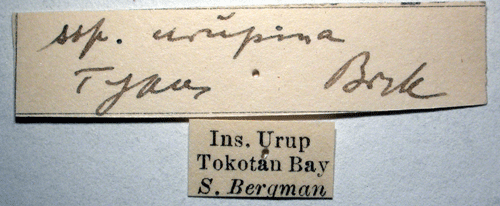 ssp. urupina
Typus Bryk
Ins. Urup
Tokotan Bay
S. Bergman